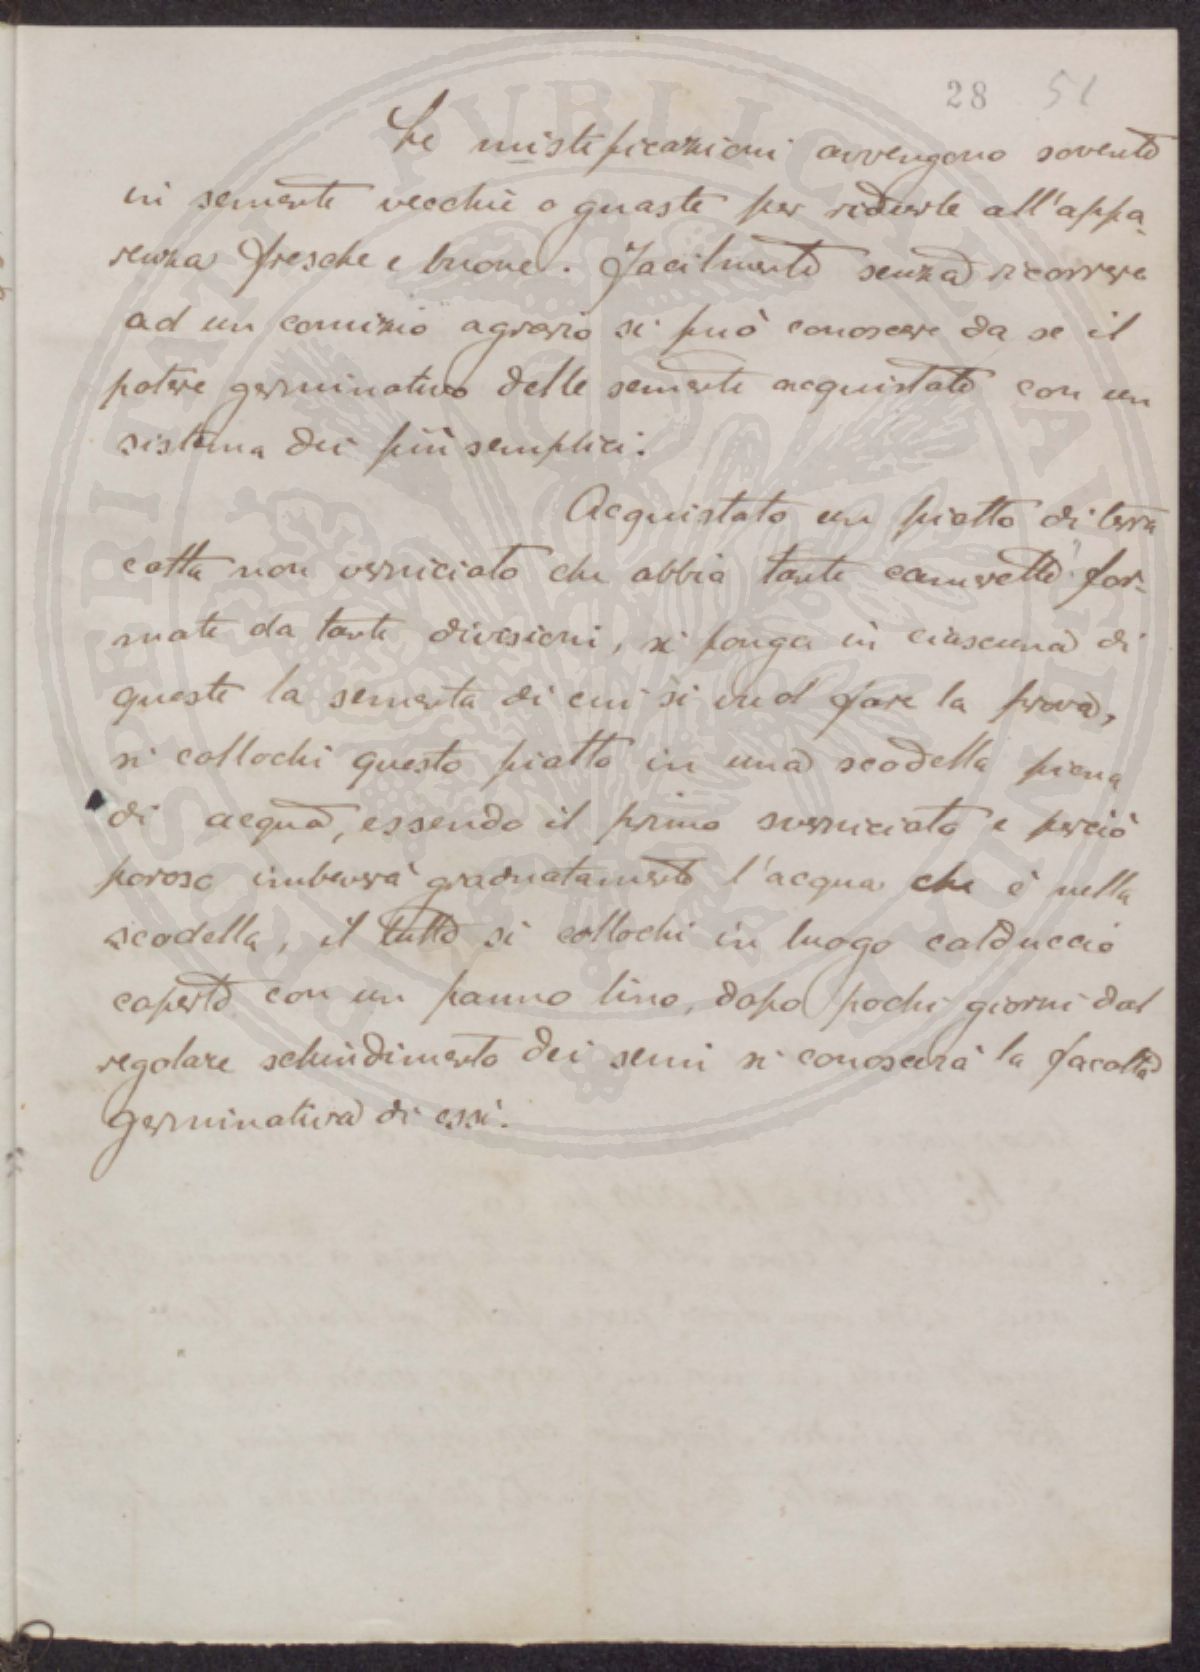 28 51
Le mistificazioni avvengono sovente
in sementi vecchie o guaste per ridurle all'appa-
renza fresche e buone. Facilmente senza ricorrere
ad un comizio agrario si può conoscere da se il
potere germinativo delle sementi acquistate con un
sistema dei più semplici.
Acquistato un piatto di terra
cotta non verniciato che abbia tante camerette for-
mate da tante divisioni, si ponga in ciascuna di
queste la sementa di cui si vuol fare la prova,
si collochi questo piatto in una scodella piena
di acqua, essendo il primo sverniciato e perciò
poroso imbeverà graduatamente l'acqua che è nella
scodella, il tutto si collochi in luogo calduccio
coperto con un panno lino, dopo pochi giorni dal
regolare schiudimento dei semi si conoscerà la facoltà
germinativa di essi.